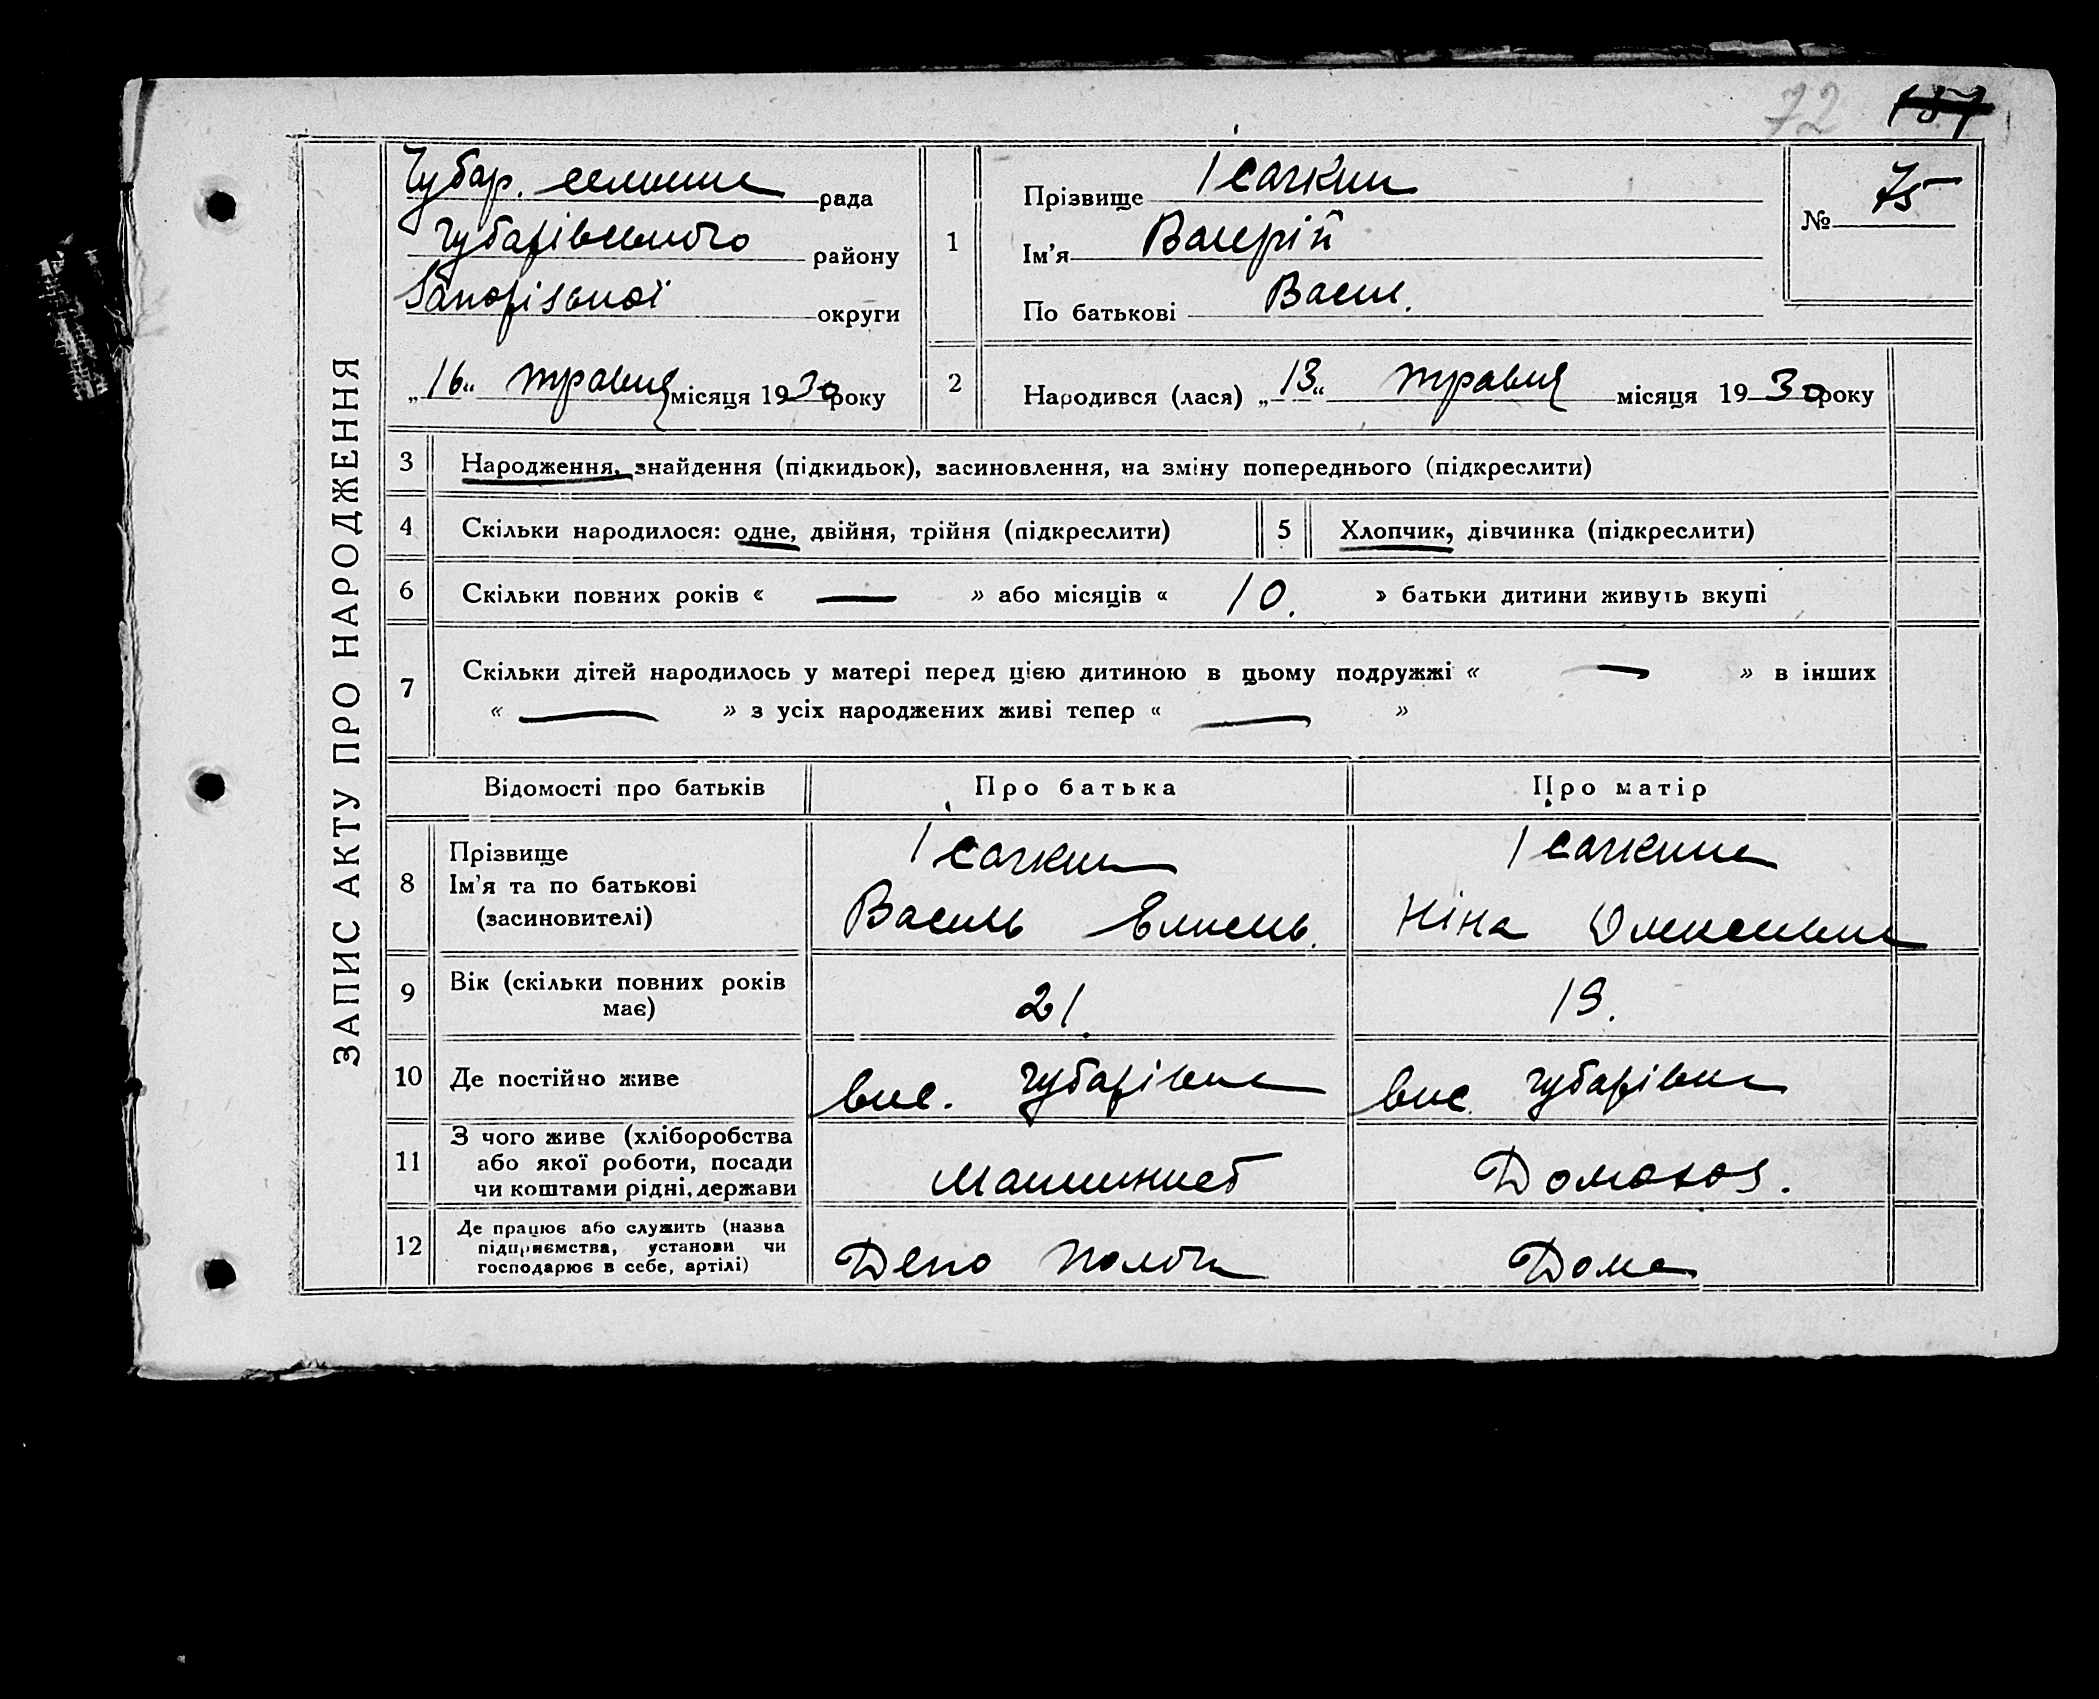 72 157
Чубар. селищна рада
Чубарівського району
Запорізької округи
„16“ травня місяця 1930 року
1
Прізвище Ісачкин
Ім'я Валерій
По батькові Васил.
№ 75
2
Народився (лася) „13“ травня місяця 1930 року
ЗАПИС АКТУ ПРО НАРОДЖЕННЯ
3 Народження, знайдення (підкидьок), засиновлення, на зміну попереднього (підкреслити)
4 Скільки народилося: одне, двійня, трійня (підкреслити) 5 Хлопчик, дівчинка (підкреслити)
6 Скільки повних років « — » або місяців « 10. » батьки дитини живуть вкупі
7 Скільки дітей народилось у матері перед цією дитиною в цьому подружжі « — » в інших
« — » з усіх народжених живі тепер « — »
Відомості про батьків Про батька Про матір
8 Прізвище
Ім'я та по батькові
(засиновителі)
Ісачкин
Василь
Ісачкина
Ніна
9 Вік (скільки повних років
має)
21. 19.
10 Де постійно живе вис. Чубарівка вис. Чубарівка
11 З чого живе (хліборобства
або якої роботи, посади
чи коштами рідні, держави
Машинист Домохоз.
12 Де працює або служить (назва
підприємства, установи чи
господарює в себе, артілі)
Депо Пологи Дома